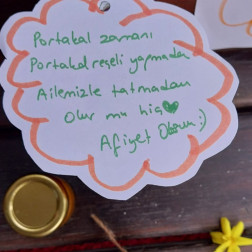 Portakal zamanı
Portakal reçeli yapmadan
Ailemizle tatmadan
Olur mu hiç
Afiyet Olsun :)